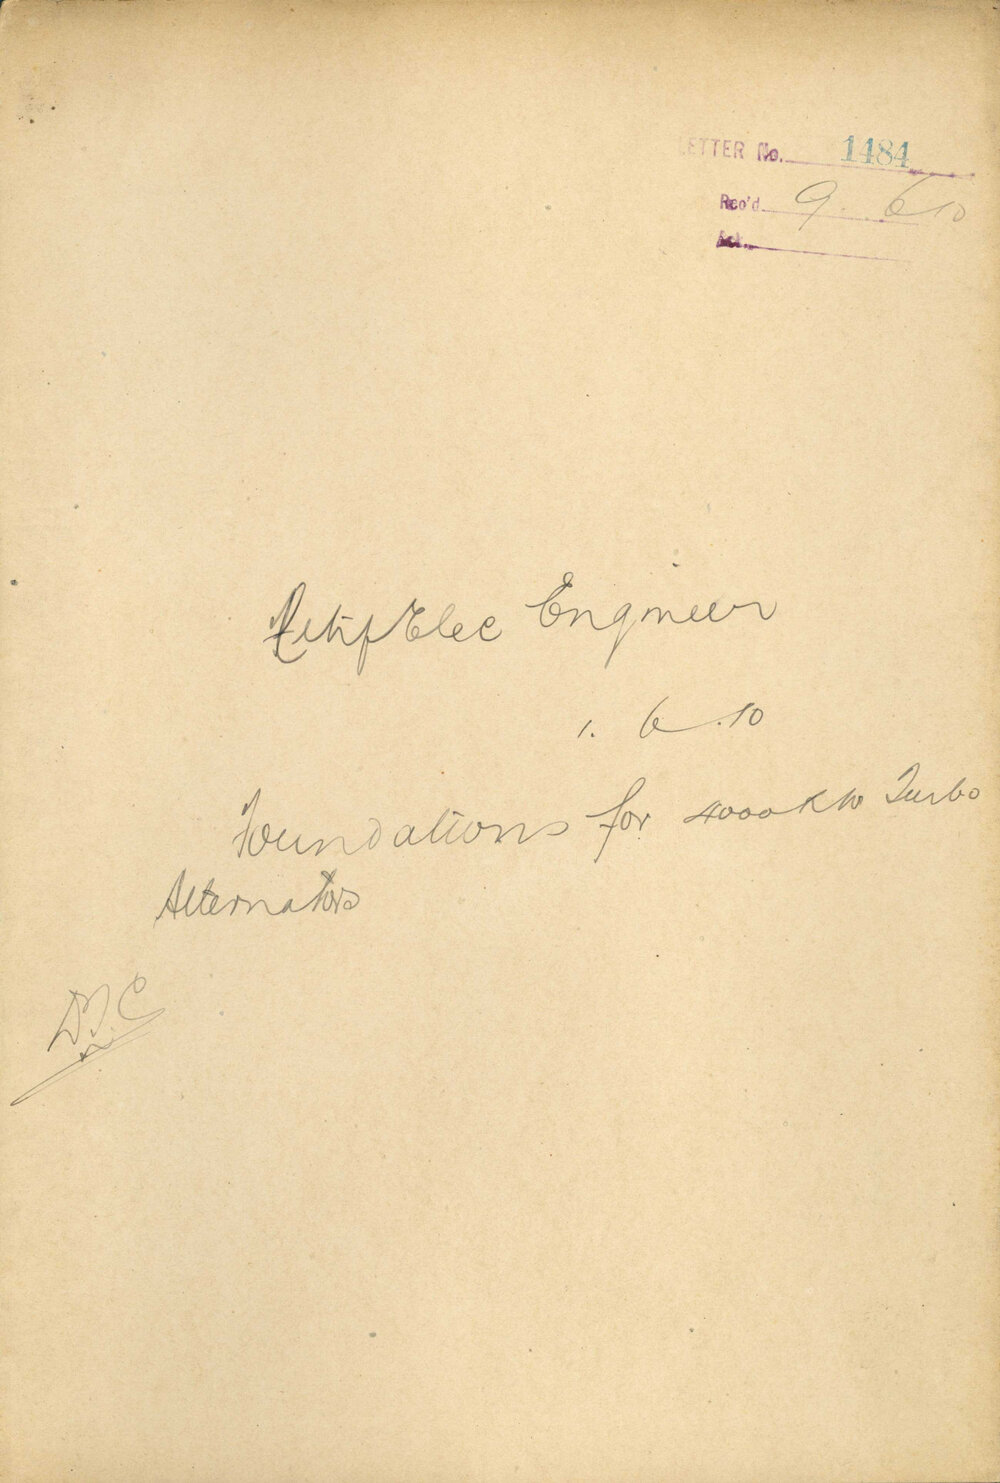 LETTER No. 1484
Rec'd 9. 6 10
Act.
Elec Engineer
1. 6 .10
Foundations for 4000 KW Turbo
Alternators